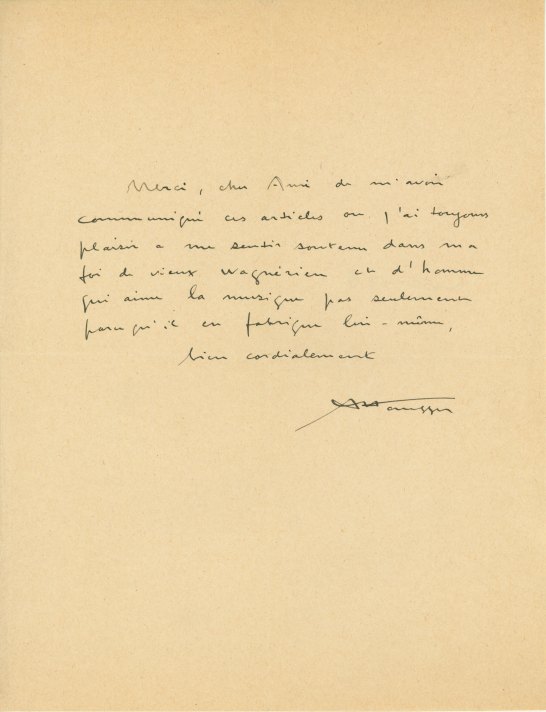 Merci, cher Ami de m'avoir
communiqué ces articles ou j'ai toujours
plaisir a me sentir soutenu dans ma
foi de vieux wagnérien et d'homme
qui aime la musique pas seulement
parcequ'il en fabrique lui-même,
bien cordialement
AHonegger